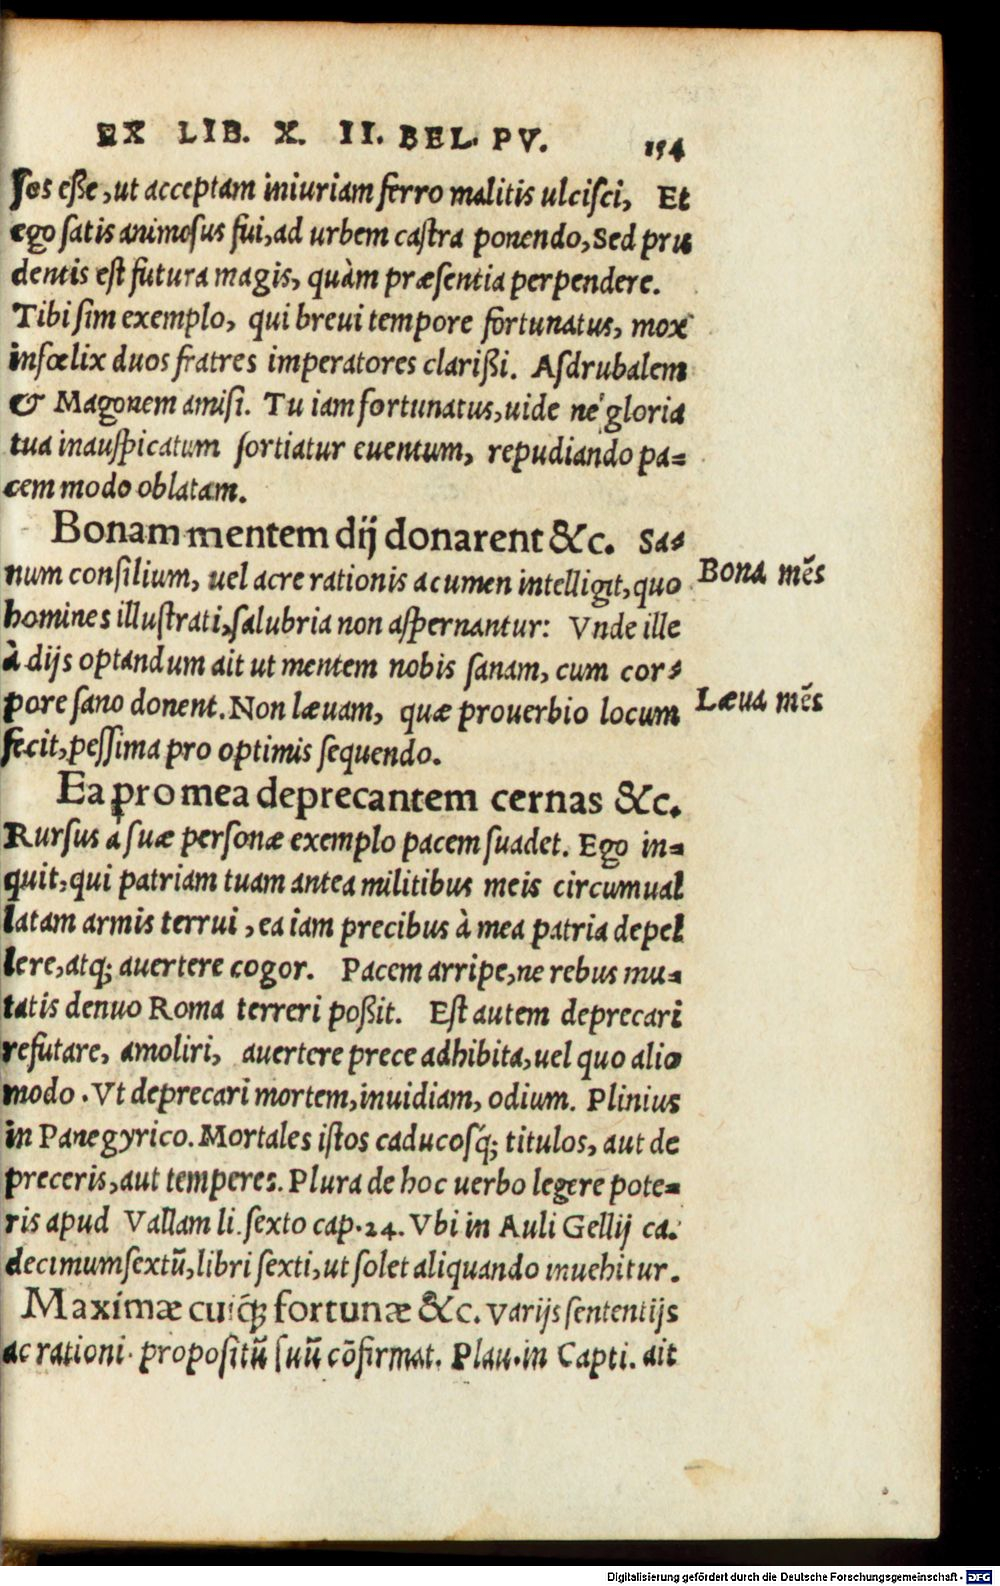 EX LIB. X. II. BEL. PV. 154
ſos eße, ut acceptam iniuriam ferro malitis ulciſci, Et
ego ſatis animoſus fui, ad urbem caſtra ponendo, Sed pru
dentis eſt futura magis, quàm præſentia perpendere.
Tibi ſim exemplo, qui breui tempore fortunatus, mox
infœlix duos fratres imperatores clarißi. Aſdrubalem
& Magonem amiſi. Tu iam fortunatus, uide nè gloria
tua inauſpicatum ſortiatur euentum, repudiando pa=
cem modo oblatam.
Bonam mentem dij donarent &c. Sa=
num conſilium, uel acre rationis acumen intelligit, quo
homines illuſtrati, ſalubria non aſpernantur: Vnde ille
à dijs optandum ait ut mentem nobis ſanam, cum cor=
pore ſano donent. Non læuam, quæ prouerbio locum
fecit, peſſima pro optimis ſequendo.
Bona mẽs
Læua mẽs
Ea pro mea deprecantem cernas &c.
Rurſus à ſuæ perſonæ exemplo pacem ſuadet. Ego in=
quit, qui patriam tuam antea militibus meis circumual
latam armis terrui, ea iam precibus à mea patria depel
lere, atq; auertere cogor. Pacem arripe, ne rebus mu=
tatis denuo Roma terreri poßit. Eſt autem deprecari
refutare, amoliri, auertere prece adhibita, uel quo alio
modo. Vt deprecari mortem, inuidiam, odium. Plinius
in Panegyrico. Mortales iſtos caducoſq́; titulos, aut de
preceris, aut temperes. Plura de hoc uerbo legere pote=
ris apud Vallam li. ſexto cap. 24. Vbi in Auli Gellij ca.
decimumſextũ, libri ſexti, ut ſolet aliquando inuehitur.
Maximæ cuiq́; fortunæ &c. Varijs ſententijs
ac rationi. propoſitũ ſuũ cõfirmat. Plau. in Capti. ait
Digitalisierung gefördert durch die Deutsche Forschungsgemeinschaft - DFG